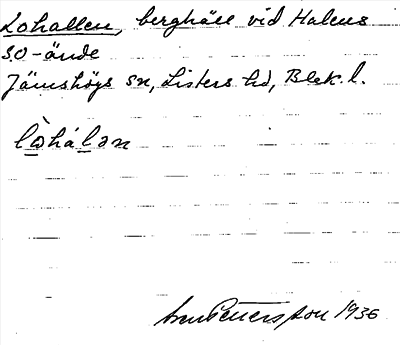 Lohallen, berghäll vid Halens
SO-ände
Jämshögs sn, Listers hd, Blek. l.
lò̱háḻən
Pettersson 1936